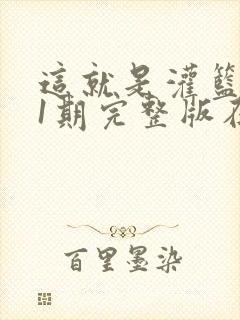 這就是灌籃
1期完整版在
百里墨染